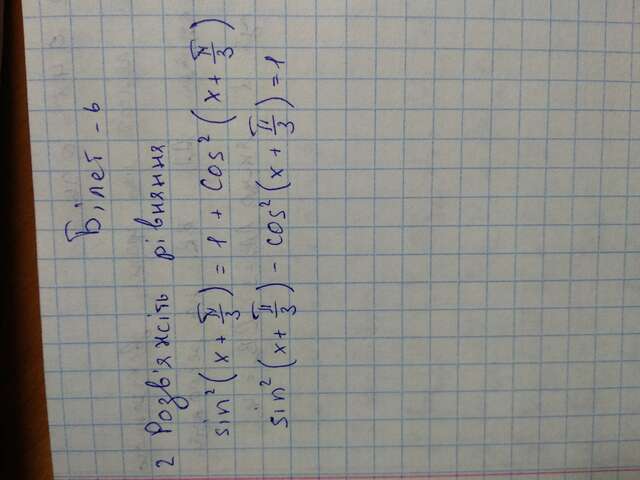 Білет - 6
2 Розв'яжіть рівняння
sin² (x + π/3) = 1 + cos² (x + π/3)
sin² (x + π/3) - cos² (x + π/3) = 1